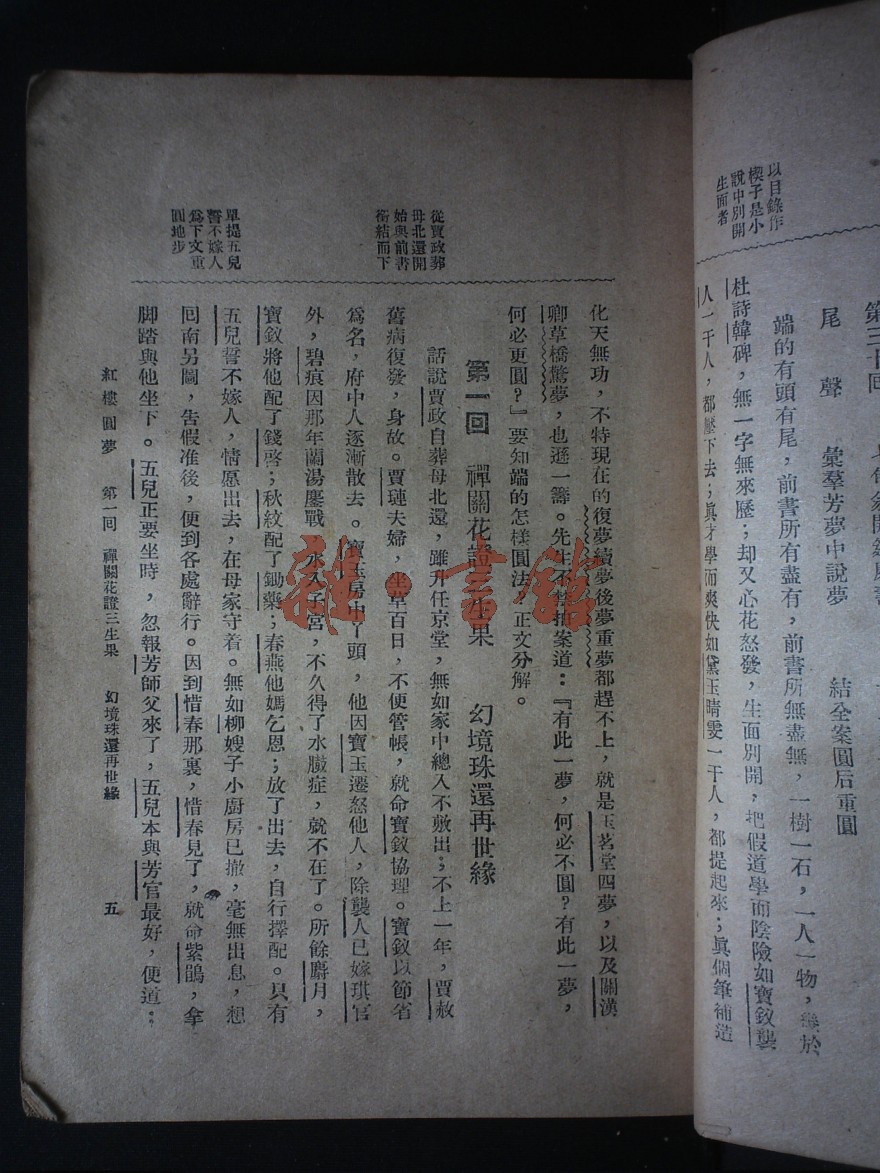 以目錄作
楔子是小
說中別開
生面者
尾聲 彙羣芳夢中說夢 結全案圓后重圓
端的有頭有尾，前書所有盡有，前書所無盡無，一樹一石，一人一物，
杜詩韓碑，無一字無來歷；却又心花怒發，生面別開，把假道學而陰險如寶釵襲
人一干人，都壓下去；眞才學而爽快如黛玉晴雯一干人，都提起來；眞個筆補造
化天無功，不特現在的復夢續夢後夢重夢都趕不上，就是玉茗堂四夢，以及關漢
卿草橋驚夢，也遜一籌。先生不禁拍案道：『有此一夢，何必不圓？有此一夢，
何必更圓？』要知端的怎樣圓法？正文分解。
第一回 禪關花證三生果 幻境珠還再世緣
從賈政葬
母北還開
始與前書
銜結而下
話說賈政自葬母北還，雖升任京堂，無如家中總入不敷出；不上一年，賈赦
舊病復發，身故。賈璉夫婦，坐草百日，不便管帳，就命寶釵協理。寶釵以節省
爲名，府中人逐漸散去。寶玉房中丫頭，他因寶玉遷怒他人，除襲人已嫁琪官
外，碧痕因那年蘭湯鏖戰，水入子宮，不久得了水臌症，就不在了。所餘麝月，
寶釵將他配了錢啓；秋紋配了鋤藥；春燕他媽乞恩；放了出去，自行擇配。只有
單提五兒
誓不嫁人
爲下文重
圓地步
五兒誓不嫁人，情愿出去，在母家守着。無如柳嫂子小廚房已撤，毫無出息，想
回南另圖，告假准後，便到各處辭行。因到惜春那裏，惜春見了，就命紫鵑，拿
脚踏與他坐下。五兒正要坐時，忽報芳師父來了，五兒本與芳官最好，便道：
紅樓圓夢 第一回 禪關花證三生果 幻境珠還再世緣 五
雜·書館